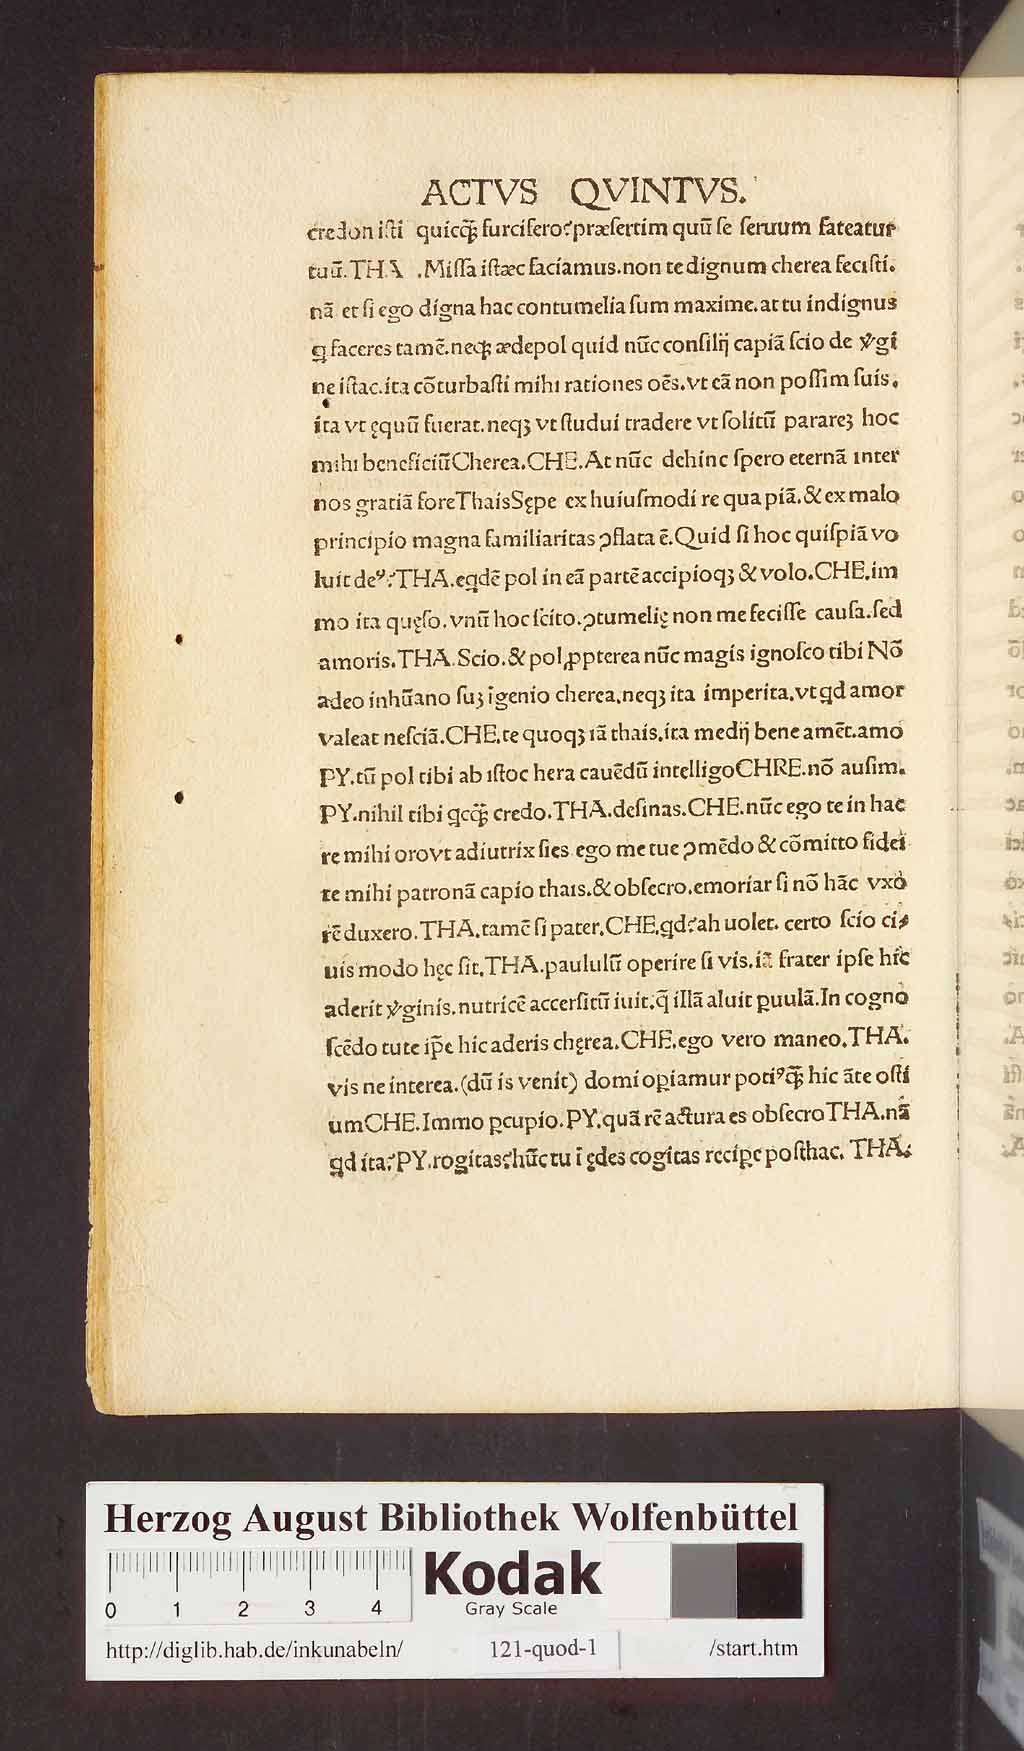 ACTVS QVINTVS.
credon iſti quicꝗ̃ furcifero? præſertim quū ſe ſeruum fateatur
tuū. THA .Miſſa iſtæc faciamus. non te dignum cherea feciſti.
nā et ſi ego digna hac contumelia ſum maxime. at tu indignus
q̇ faceres tamē. neqꝫ ædepol quid nūc conſilij capiā ſcio de v̓gi
ne iſtac. ita cōturbaſti mihi rationes oēs. vt eā non poſſim ſuis.
ita vt ęquū fuerat. neqꝫ vt ſtudui tradere vt ſolitū pareꝫ hoc
mihi beneficiū Cherea. CHE. At nūc dehinc ſpero eternā inter
nos gratiā fore Thais Sępe ex huiuſmodi re qua piā. & ex malo
principio magna familiaritas ꝯflata ē. Quid ſi hoc quiſpiā vo
luit deꝰ? THA. eqdē pol in eā partē accipioqꝫ & volo. CHE. im
mo ita quęſo. vnū hoc ſcito. ꝯtumelię non me feciſſe cauſa. ſed
amoris. THA. Scio. & pol ꝓpterea nūc magis ignoſco tibi Nō
adeo inhūano ſuꝫ īgenio cherea. neqꝫ ita imperita. vt qd amor
valeat neſciā. CHE. te quoqꝫ iā thais. ita medij bene amēt. amo
PY. tū pol tibi ab iſtoc hera cauēdū intelligo CHRE. nō auſim.
PY. nihil tibi qcꝗ̃ credo. THA. deſinas. CHE. nūc ego te in hac
re mihi oro vt adiutrix ſies ego me tue ꝯmēdo & cōmitto fidei
te mihi patronā capio thais. & obſecro. emoriar ſi nō hāc vxo
rē duxero. THA. tamē ſi pater. CHE. qd? ah uolet. certo ſcio ci⸗
uis modo hęc ſit. THA. paululū operire ſi vis. iā frater ipſe hic
aderit v̓ginis. nutricē accerſitū iuit. q̄ illā aluit ꝑuulā. In cogno
ſcēdo tute ip̄e hic aderis chęrea. CHE. ego vero maneo. THA.
vis ne interea. (dū is venit) domi opiamur potiꝰꝗ̃ hic āte oſti
um CHE. Immo ꝑcupio. PY. quā rē actura es obſecro THA. nā
qd ita? PY. rogitas? hūc tu ī ędes cogitas recipe poſthac. THA.
Herzog August Bibliothek Wolfenbüttel
0 1 2 3 4
Kodak
Gray Scale
http://diglib.hab.de/inkunabeln/ 121-quod-1 /start.htm